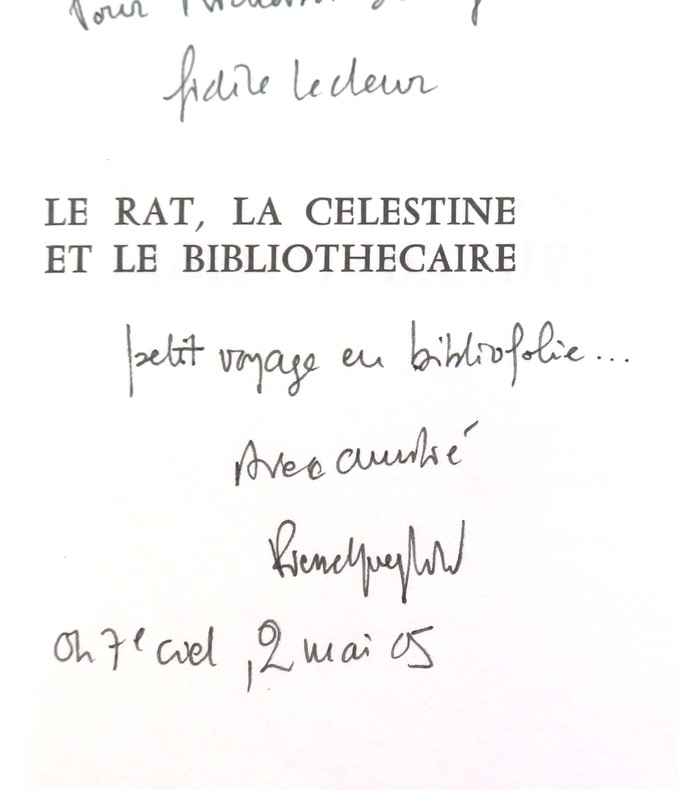 Pour
fidèle lecteur
LE RAT, LA CELESTINE
ET LE BIBLIOTHECAIRE
petit voyage en bibliofolie...
Avec amitié
7e ciel, 2 mai 05